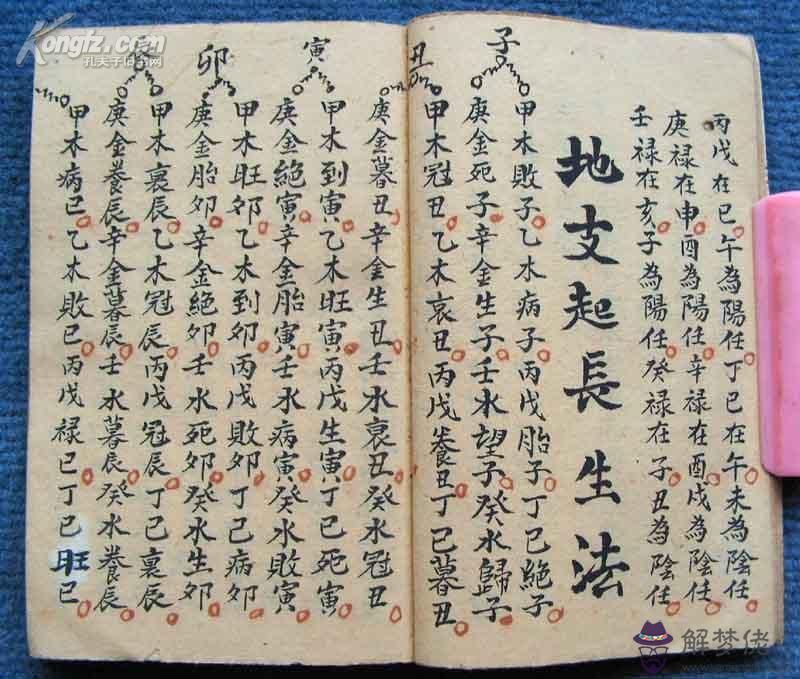 丙戊在巳午為陽任丁巳在午未為陰任
庚禄在申酉為陽任辛禄在酉戌為陰任
壬禄在亥子為陽任癸禄在子丑為陰任
地支起長生法
子
甲木敗子乙木病子丙戊胎子丁巳絕子
庚金死子辛金生子壬水望子癸水歸子
丑
甲木冠丑乙木衰丑丙戊養丑丁巳暮丑
庚金暮丑辛金生丑壬水衰丑癸水冠丑
寅
甲木到寅乙木旺寅丙戊生寅丁巳死寅
庚金絕寅辛金胎寅壬水病寅癸水敗寅
卯
甲木旺卯乙木到卯丙戊敗卯丁巳病卯
庚金胎卯辛金絕卯壬水死卯癸水生卯
甲木裏辰乙木冠辰丙戊冠辰丁巳裏辰
庚金養辰辛金暮辰壬水暮辰癸水養辰
甲木病巳乙木敗巳丙戊禄巳丁巳旺巳
Kongfz.com
孔夫子旧书网
解梦佬